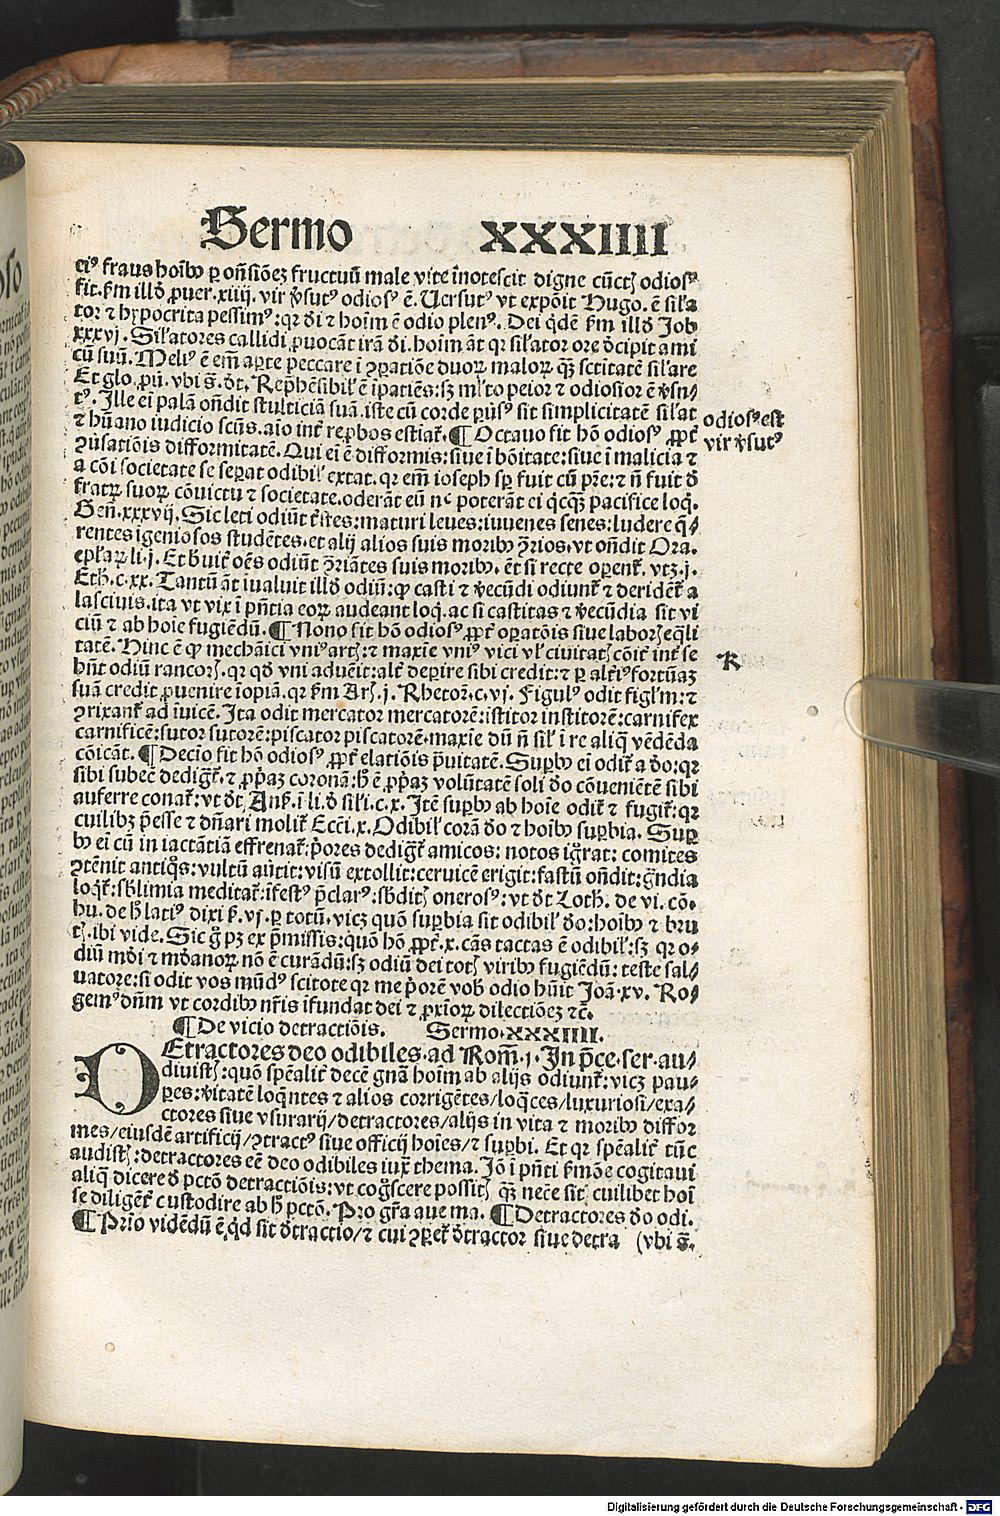 Sermo XXXIIII
eiꝰ fraus hoĩbꝰ ꝑ oñsiõez fructuũ male vite ĩnotescit digne cũctꝭ odiosꝰ
fit. ẜm illď ꝓuer. xiiij. vir v̓sutꝰ odiosꝰ ẽ. Uersutꝰ vt expõit Hugo. ẽ sil̓a
tor ⁊ hypocrita pessimꝰ: qꝛ di ⁊ hoĩm ẽ odio plenꝰ. Dei qdẽ ẜm illď Job
xxxvj. Sil̓atores callidi ꝓuocãt irã di. hoĩm ãt qꝛ sil̓ator ore ďcipit ami
cũ suũ. Meliꝰ ẽ em̃ aꝑte peccare ĩ ꝯꝑatiõe duoꝝ maloꝝ qꝫ sctitatẽ sil̓are
Et glo. ꝓũ. vbi s̃. dt. Rep̃hẽsibil̓ ẽ ĩpatiẽs: sꝫ ml̓to peior ⁊ odiosior ẽ v̓su⸗
tꝰ. Ille ei palã oñdit stulticiã suã. iste cũ corde ꝑũsꝰ sit simplicitatẽ sil̓at
⁊ hũano iudicio scũs. aĩo int̃ reprobos estiat̃. ¶ Octauo fit hõ odiosꝰ ꝓpt̃
ꝯuersatiõis difformitatẽ. Qui ei ẽ difformis: siue ĩ bõitate: siue ĩ malicia ⁊
a cõi societate se seꝑat odibil̓ extat. qꝛ em̃ ioseph sꝑ fuit cũ pr̃e: ⁊ ñ fuit ď
fratꝝ suoꝝ cõuictu ⁊ societate. oderãt eũ nc̃ poterãt ei qͥcqͣꝫ pacifice loq̃.
Geñ. xxxvij. Sic leti odiũt tr̃istes: maturi leues: iuuenes senes: ludere q̃⸗
rentes igeniosos studẽtes. et alij alios suis moribꝰ ꝯ̃rios. vt oñdit Ora.
epl̓aꝝ li. j. Et bẽuit̃ oẽs odiũt ꝯ̃riãtes suis moribꝰ. ẽt si recte oꝑent̃. vtꝫ. j.
Eth̃. c. xx. Tantũ ãt iualuit illď odiũ: ꝙ casti ⁊ v̓ecũdi odiunt̃ ⁊ deridẽt̃ a
lasciuis. ita vt vix ĩ pñtia eoꝝ audeant loq̃. ac si castitas ⁊ v̓ecũdia sit vi
ciũ ⁊ ab hoĩe fugiẽdũ. ¶ Nono fit hõ odiosꝰ ꝓpt̃ oꝑatõis siue laborꝭ eq̃li
tatẽ. Hinc ẽ ꝙ mechãici vniꝰ artꝭ: ⁊ maxĩe vniꝰ vici vl̓ ciuitatꝭ cõit̃ int̃ se
hñt odiũ rancorꝭ. qꝛ qď vni aduẽit: alt̃ deꝑire sibi credit: ⁊ ꝑ alt̃iꝰ fortũaꝫ
suã credit ꝓuenire iopiã. qꝛ ẜm Arꝭ. j. Rhetoꝝ. c. vj. Figulꝰ odit figl̓m: ⁊
ꝯrixant̃ ad ĩuicẽ. Ita odit mercator mercatorẽ: istitor institorẽ: carnifex
carnificẽ: sutor sutorẽ: piscator piscatorẽ. maxĩe dũ ñ sil̓ ĩ re aliq̃ vẽdẽda
cõicãt. ¶ Decio fit hõ odiosꝰ ꝓpt̃ elatiõis p̃uitatẽ. Suꝑbꝰ ei odit̃ a ďo: qꝛ
sibi subeẽ dedigt̃. ⁊ ꝓpꝛaꝫ coronã: hẽ ꝓpꝛaꝫ volũtatẽ soli ďo cõueniẽtẽ sibi
auferre conat̃: vt dt Anẜ. ĩ li. ď sil̓i. c. x. Itẽ suꝑbꝰ ab hoĩe odit̃ ⁊ fugit̃: qꝛ
cuilibꝫ p̃esse ⁊ dñari molit̃ Ecc̃i. x. Odibil̓ corã ďo ⁊ hoĩbꝰ suꝑbia. Suꝑ
bꝰ ei cũ in iactãtiã effrenat̃: p̓ores dedigt̃ amicos: notos igr̃at: comites
ꝯtẽnit antiqͦs: vultũ aũtit: visũ extollit: ceruicẽ erigit: fastũ oñdit: gr̃ndia
loqt̃: sb̓limia meditat̃: ĩfestꝰ p̃clarꝰ: sb̓ditꝭ onerosꝰ: vt dt Loth. de vi. cõ⸗
hu. de hꝭ latiꝰ dixi ẜ. vj. ꝑ totũ. vicꝫ quõ suꝑbia sit odibil̓ ďo: hoĩbꝰ ⁊ bru
tꝭ. ibi vide. Sic g̊ pꝫ ex p̃missis: quõ hõ ꝓpt̃. x. cãs tactas ẽ odibil̓: sꝫ qꝛ o⸗
diũ mďi ⁊ mďanoꝝ nõ ẽ curãdũ: sꝫ odiũ dei totꝭ viribꝰ fugiẽdũ: teste sal⸗
uatore: si odit vos mũdꝰ scitote qꝛ me p̓orẽ vob̃ odio hũit Joã. xv. Ro⸗
gemꝰ dñm vt cordibꝰ nr̃is ĩfundat dei ⁊ ꝓxĩoꝝ dilectiõez ⁊c̃.
odiosꝰ est
vir v̓sutꝰ
R
¶ De vicio detractiõis. Sermo. xxxiiii.
DEtractores deo odibiles. ad Rom̃. j. In p̃ce. ser. au⸗
diuistꝭ: quõ sp̃ealit̃ decẽ gñã hoĩm ab alijs odiunt̃: vicꝫ pau⸗
ꝑes: v̓itatẽ loq̃ntes ⁊ alios corrigẽtes/ loq̃ces/ luxuriosi/ exa⸗
ctores siue vsurarij/ detractores/ alijs in vita ⁊ moribꝰ diffor
mes/ eiusdẽ artificij/ ꝯtractꝰ siue officij hoĩes/ ⁊ suꝑbi. Et qꝛ sp̃ealit̃ tũc
audistꝭ: detractores eẽ deo odibiles iux̃ thema. Jõ ĩ pñti ẜmõe cogitaui
aliq̃ dicere ď pctõ detractiõis: vt cog̊scere possitꝭ qͣꝫ nec̃e sit cuilibet hoĩ
se diligẽt̃ custodire ab hꝭ pctõ. Pro gr̃a aue ma. ¶ Detractores ďo odi.
¶ Prĩo vidẽdũ ẽ qͥd sit ďtractio/ ⁊ cui ꝯꝑet̃ ďtractor siue detra (vbi s̃.
Digitalisierung gefördert durch die Deutsche Forschungsgemeinschaft - DFG